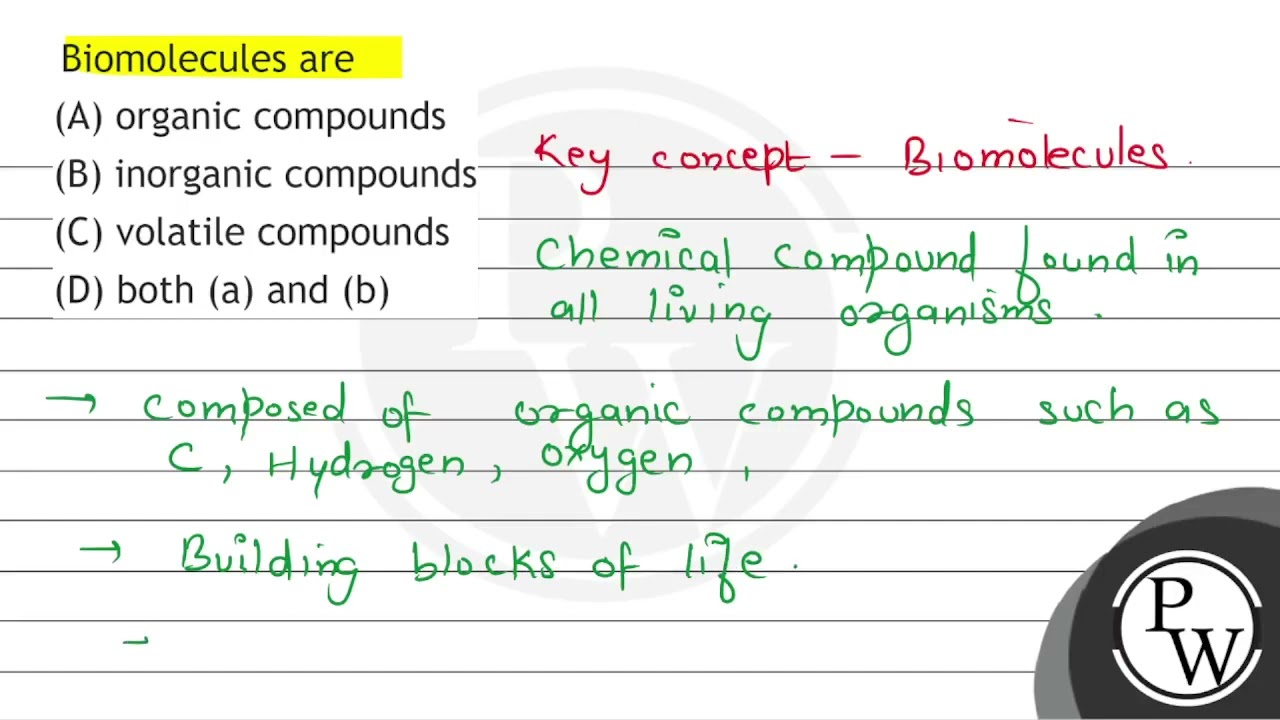 Biomolecules are
(A) organic compounds
(B) inorganic compounds
(C) volatile compounds
(D) both (a) and (b)
Key concept – Biomolecules.
Chemical compound found in
all living organisms.
→ composed of organic compounds such as
C, Hydrogen, oxygen,
→ Building blocks of life.
PW
PW